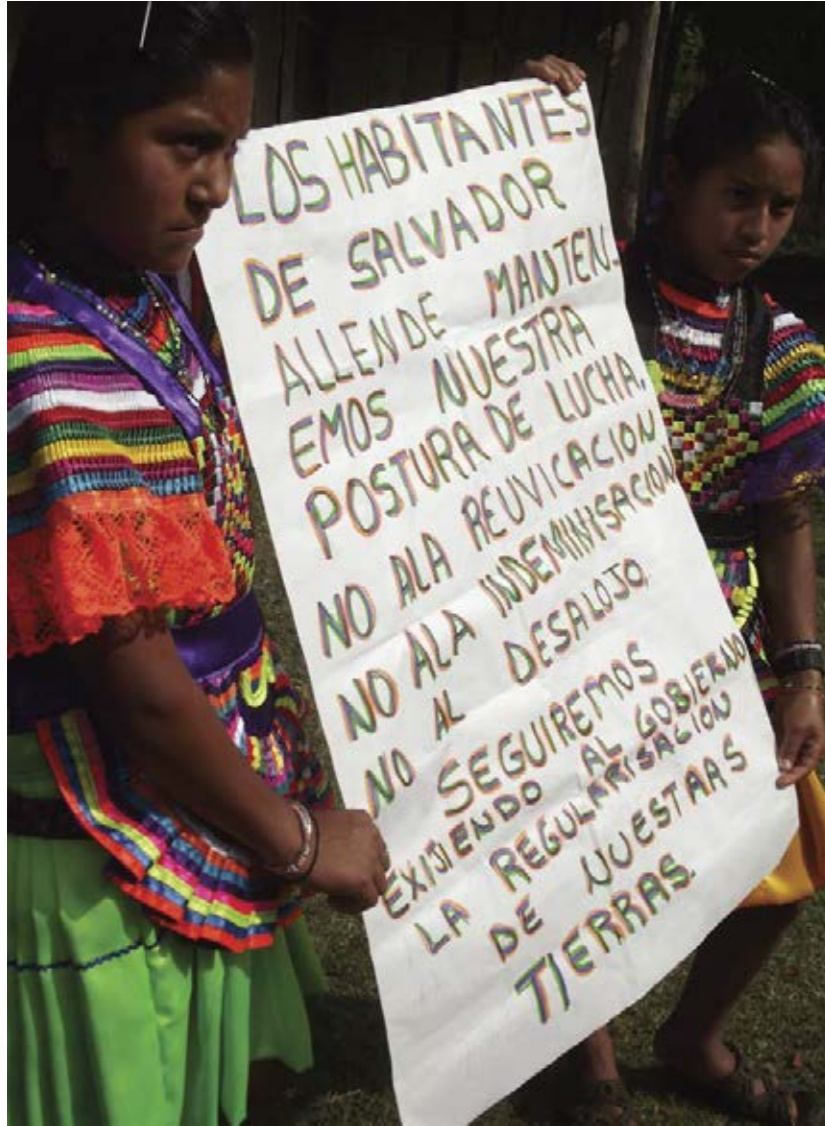 LOS HABITANTES
DE SALVADOR
ALLENDE MANTEN-
EMOS NUESTRA
POSTURA DE LUCHA.
NO ALA REUVICACION
NO ALA INDEMINISACION
NO AL DESALOJO,
SEGUIREMOS
EXIJIENDO AL GOBIERNO
LA REGULARISACION
DE NUESTAAS
TIERRAS.